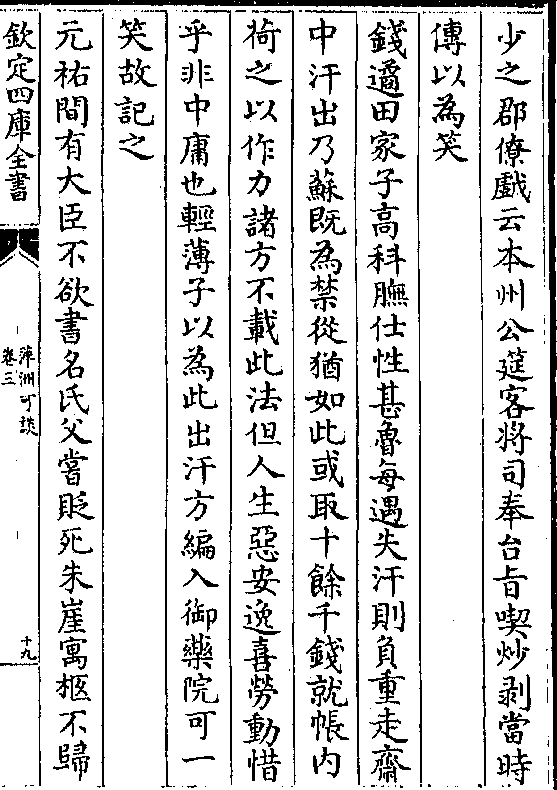 少之郡僚戲云本州公筵客將司奉台旨喫炒剥當時
傳以為笑
錢遹田家子高科膴仕性甚魯每遇失汗則負重走齋
中汗出乃蘇既為禁從猶如此或取十餘千錢就帳内
荷之以作力諸方不載此法但人生惡安逸喜勞動惜
乎非中庸也輕薄子以為此出汗方編入御藥院可一
笑故記之
元祐間有大臣不欲書名氏父嘗貶死朱崖寓柩不歸
欽定四庫全書
萍洲可談
卷三
十九